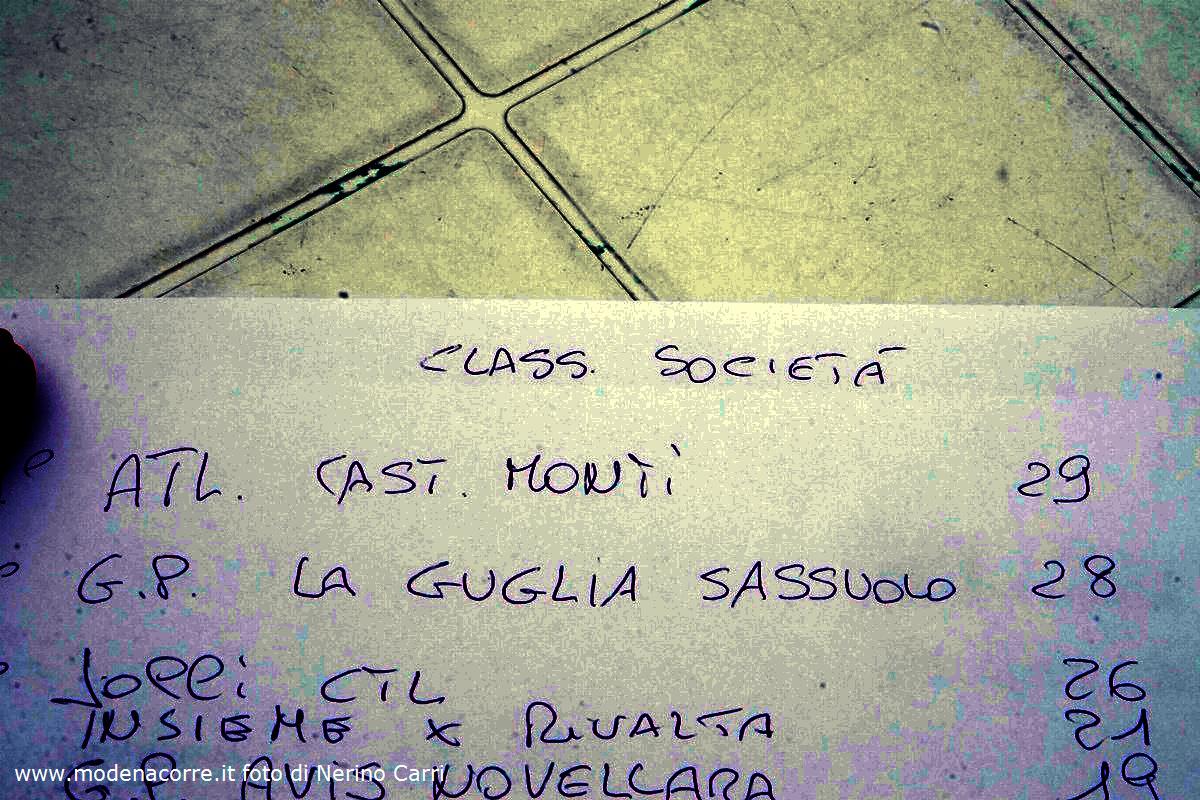 CLASS. SOCIETÀ
ATL. CAST. MONTI 29
G.P. LA GUGLIA SASSUOLO 28
JOLLI CTL 26
INSIEME X RIVALTA 21
G.P. AVIS NOVELLARA 19
www.modenacorre.it foto di Nerino Carri